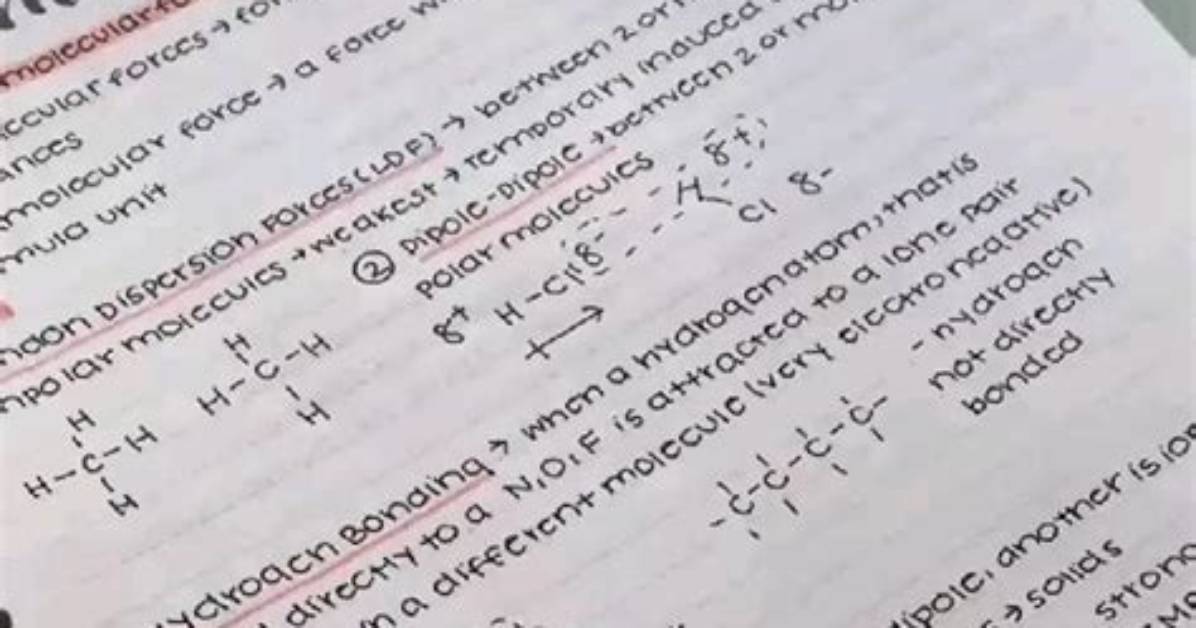 molecular fo
ecular forces → for
ances
molecular force → a force w
mula unit
ndon Dispersion Forces (LDF) → between 2 or
npolar molecules → weakest → temporary induced
② Dipole-Dipole → between 2 or mo
polar molecules
H
H-C-H
H
H
H-C-H
H
δ+ H-Cl δ-
H δ+
Cl δ-
ydrogen Bonding → when a hydrogen atom, that is
directly to a N,O,F is attracted to a lone pair
n a different molecule (very electronegative)
-C-C-C-C-
- hydrogen
not directly
bonded
dipole, another is ion
→ solids
strong